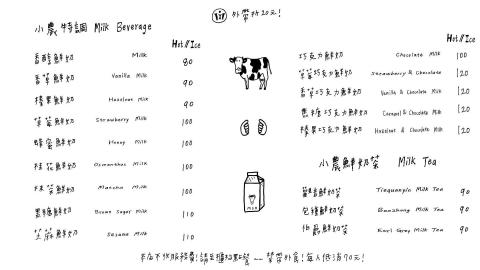 外帶折20元!
小農特調 Milk Beverage
Hot//Ice
香醇鮮奶 Milk 80
香草鮮奶 Vanilla Milk 90
榛果鮮奶 Hazelnut Milk 90
草莓鮮奶 Strawberry Milk 100
蜂蜜鮮奶 Honey Milk 100
桂花鮮奶 Osmanthus Milk 100
抹茶鮮奶 Matcha Milk 100
黑糖鮮奶 Brown Sugar Milk 110
芝麻鮮奶 Sesame Milk 110
Hot//Ice
巧克力鮮奶 Chocolate Milk 100
草莓巧克力鮮奶 Strawberry & Chocolate 120
香草巧克力鮮奶 Vanilla & Chocolate Milk 120
焦糖巧克力鮮奶 Caramel & Chocolate Milk 120
榛果巧克力鮮奶 Hazelnut & Chocolate Milk 120
小農鮮奶茶 Milk Tea
鐵觀音鮮奶茶 Tieguanyin Milk Tea 90
包種鮮奶茶 Baozhong Milk Tea 90
伯爵鮮奶茶 Earl Grey Milk Tea 90
MILK